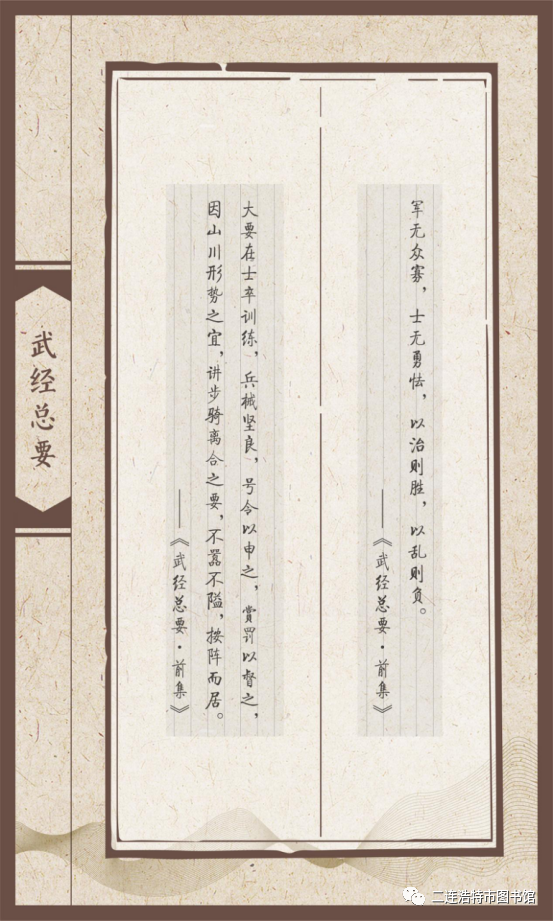 军无众寡，士无勇怯，以治则胜，以乱则负。
——《武经总要·前集》
大要在士卒训练，兵械坚良，号令以申之，赏罚以督之，
因山川形势之宜，讲步骑离合之要，不嚣不隘，按阵而居。
——《武经总要·前集》
武经总要
二连浩特市图书馆